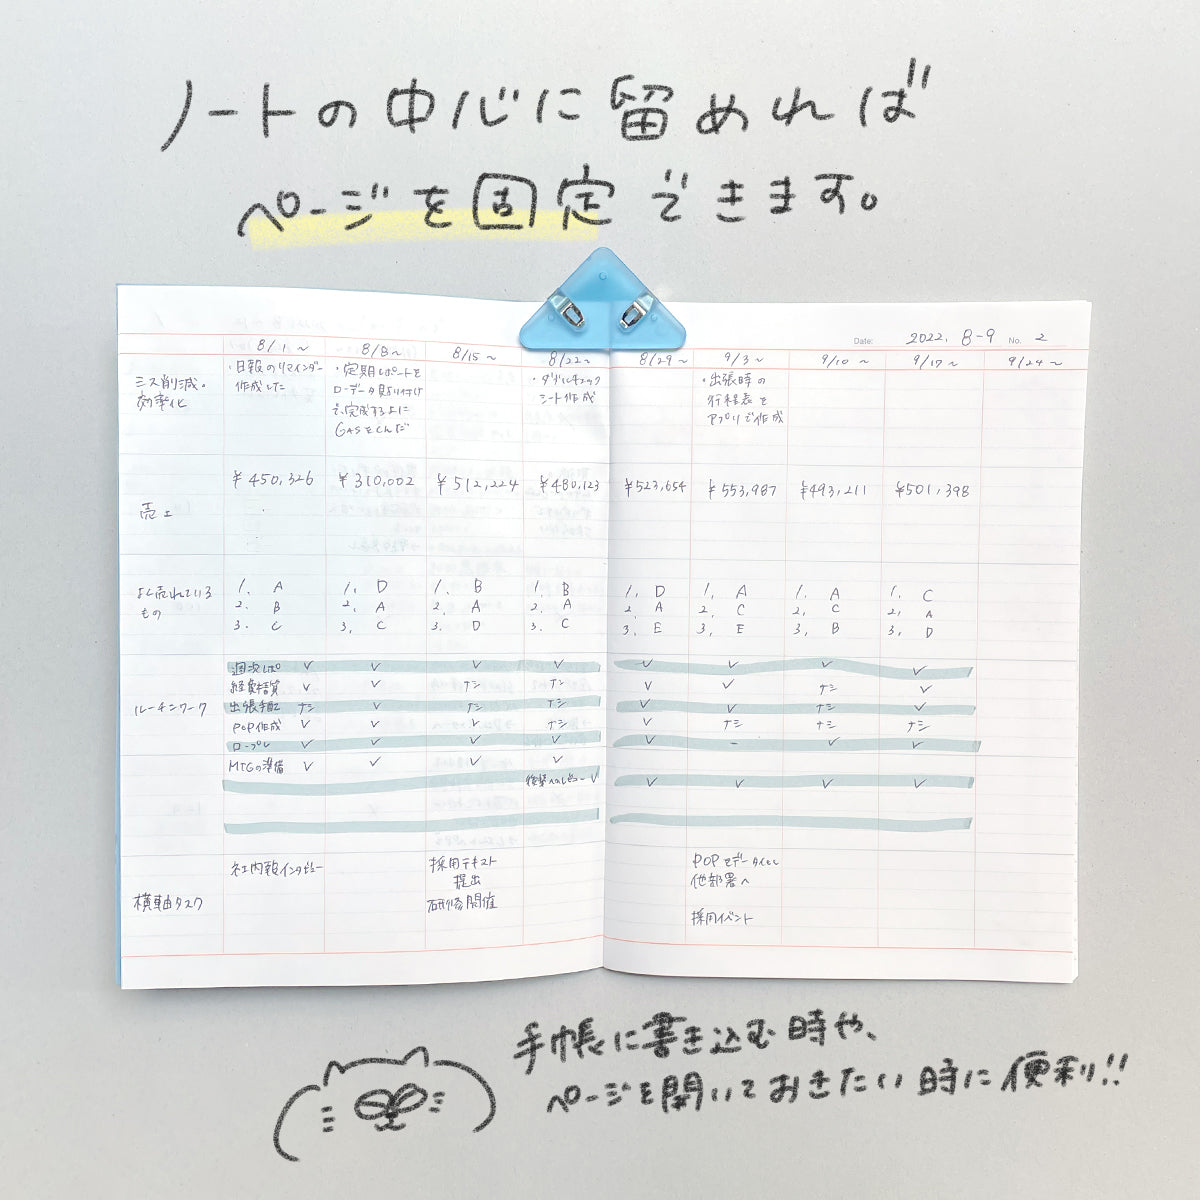 ノートの中心に留めれば
ページを固定できます。
Date: 2022. 8-9 No. 2
8/1~ 8/8~ 8/15~ 8/22~ 8/29~ 9/3~ 9/10~ 9/17~ 9/24~
ミス削減・
効率化
・日報のリマインダー
作成した
・定期レポートを
ローデータ貼り付け
で完成するように
GASをくんだ
・ダブルチェック
シート作成
・出張時の
行程表を
アプリで作成
売上
¥450,326 ¥310,002 ¥512,224 ¥480,123 ¥523,654 ¥553,987 ¥493,211 ¥501,398
よく売れている
もの
1. A 1. D 1. B 1. B 1. D 1. A 1. A 1. C
2. B 2. A 2. A 2. A 2. A 2. C 2. C 2. A
3. C 3. C 3. D 3. C 3. E 3. E 3. B 3. D
ルーチンワーク
週次レポ ✓ ✓ ✓ ✓ ✓ ✓ ✓ ✓
経費精算 ✓ ✓ ナシ ナシ ✓ ✓ ナシ ✓
出張手配 ナシ ✓ ナシ ナシ ✓ ✓ ナシ ✓
POP作成 ✓ ✓ ✓ ナシ ✓ ナシ ナシ ナシ
ロープレ ✓ ✓ ✓ ✓ ✓ - ✓ ✓
MTGの準備 ✓ ✓ ✓ ✓
後輩へのレビュー ✓ ✓ ✓ ✓ ✓
横軸タスク
社内報インタビュー
採用テキスト
提出
研修開催
POPをデータ化し
他部署へ
採用イベント
手帳に書き込む時や、
ページを開いておきたい時に便利!!